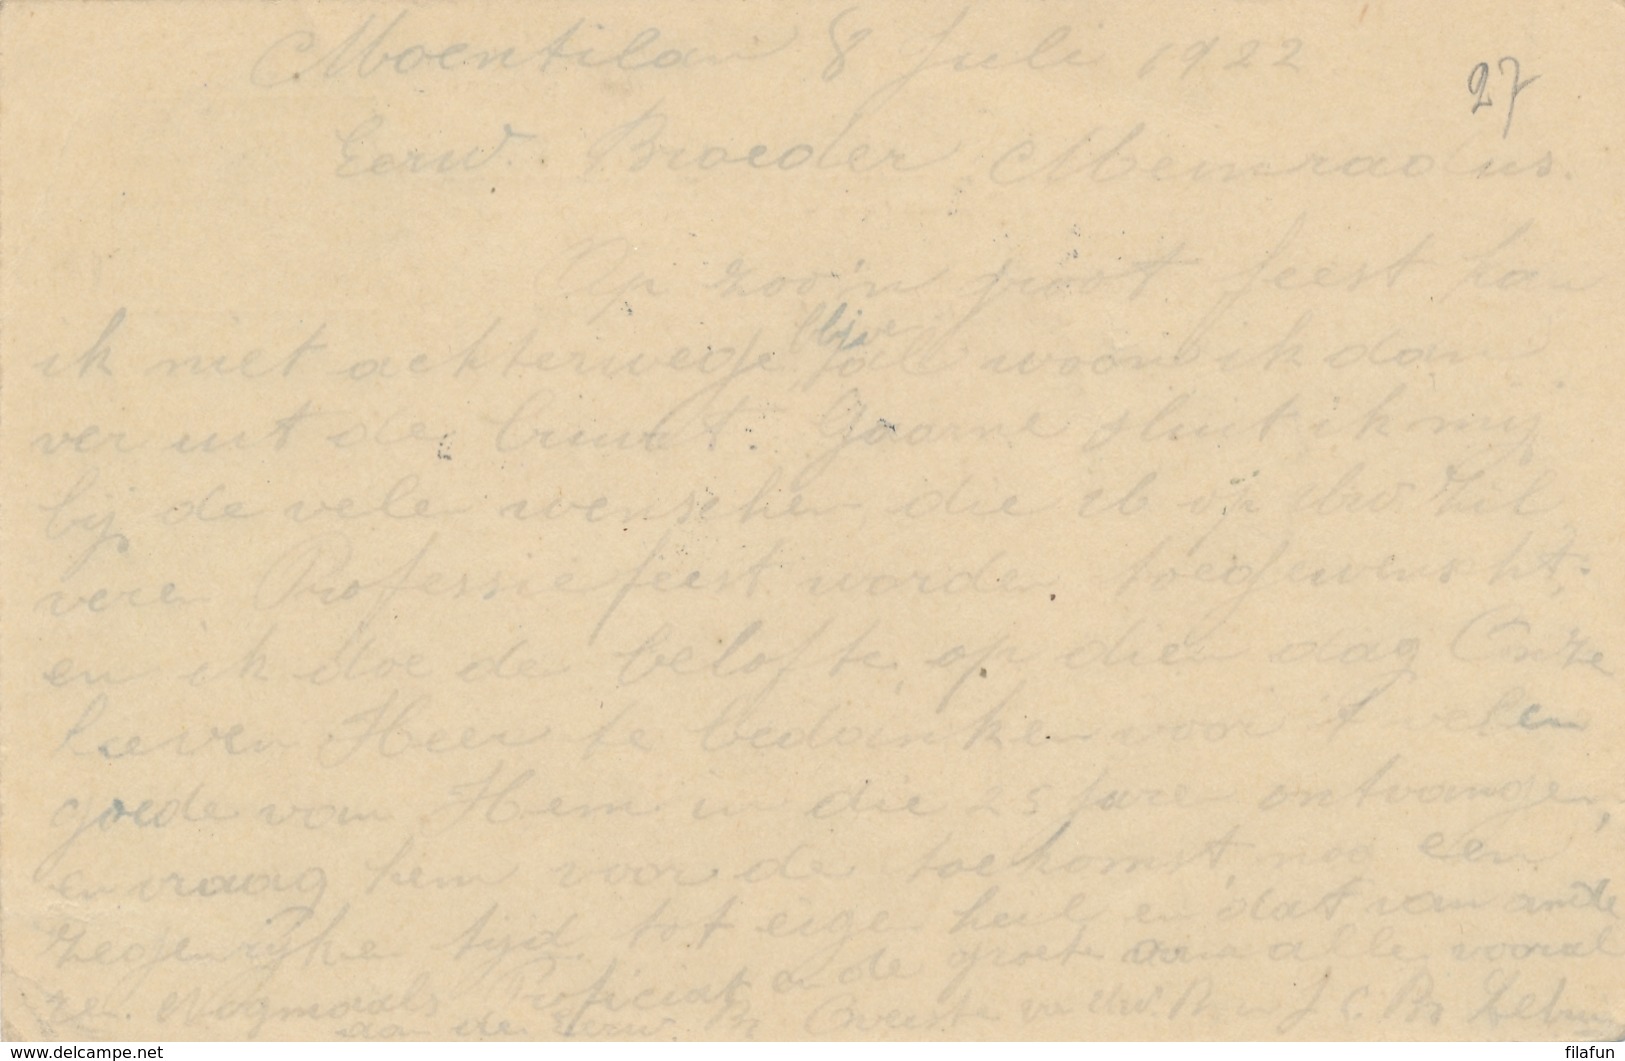 Moentilan 8 Juli 1922
27
Eerw. Broeder Meinradus.
Op zoo'n groot feest kan
ik niet achterwege blijve al woon ik dan
ver uit de buurt. Gaarne sluit ik mij
bij de vele wenschen die U op Uw Zil
veren Professiefeest worden toegewenscht,
en ik doe de belofte op dien dag Onze
lieven Heer te bedanken voor 't vele en
goede van Hem in die 25 jare ontvangen,
en vraag hem voor de toekomst nog een
zegenrijke tijd tot eigen heil en dat van ande
re. Nogmaals Proficiat en de groete aan alle vooral
aan de Eerw. Br Overste van Uw. Br in J. C. Br